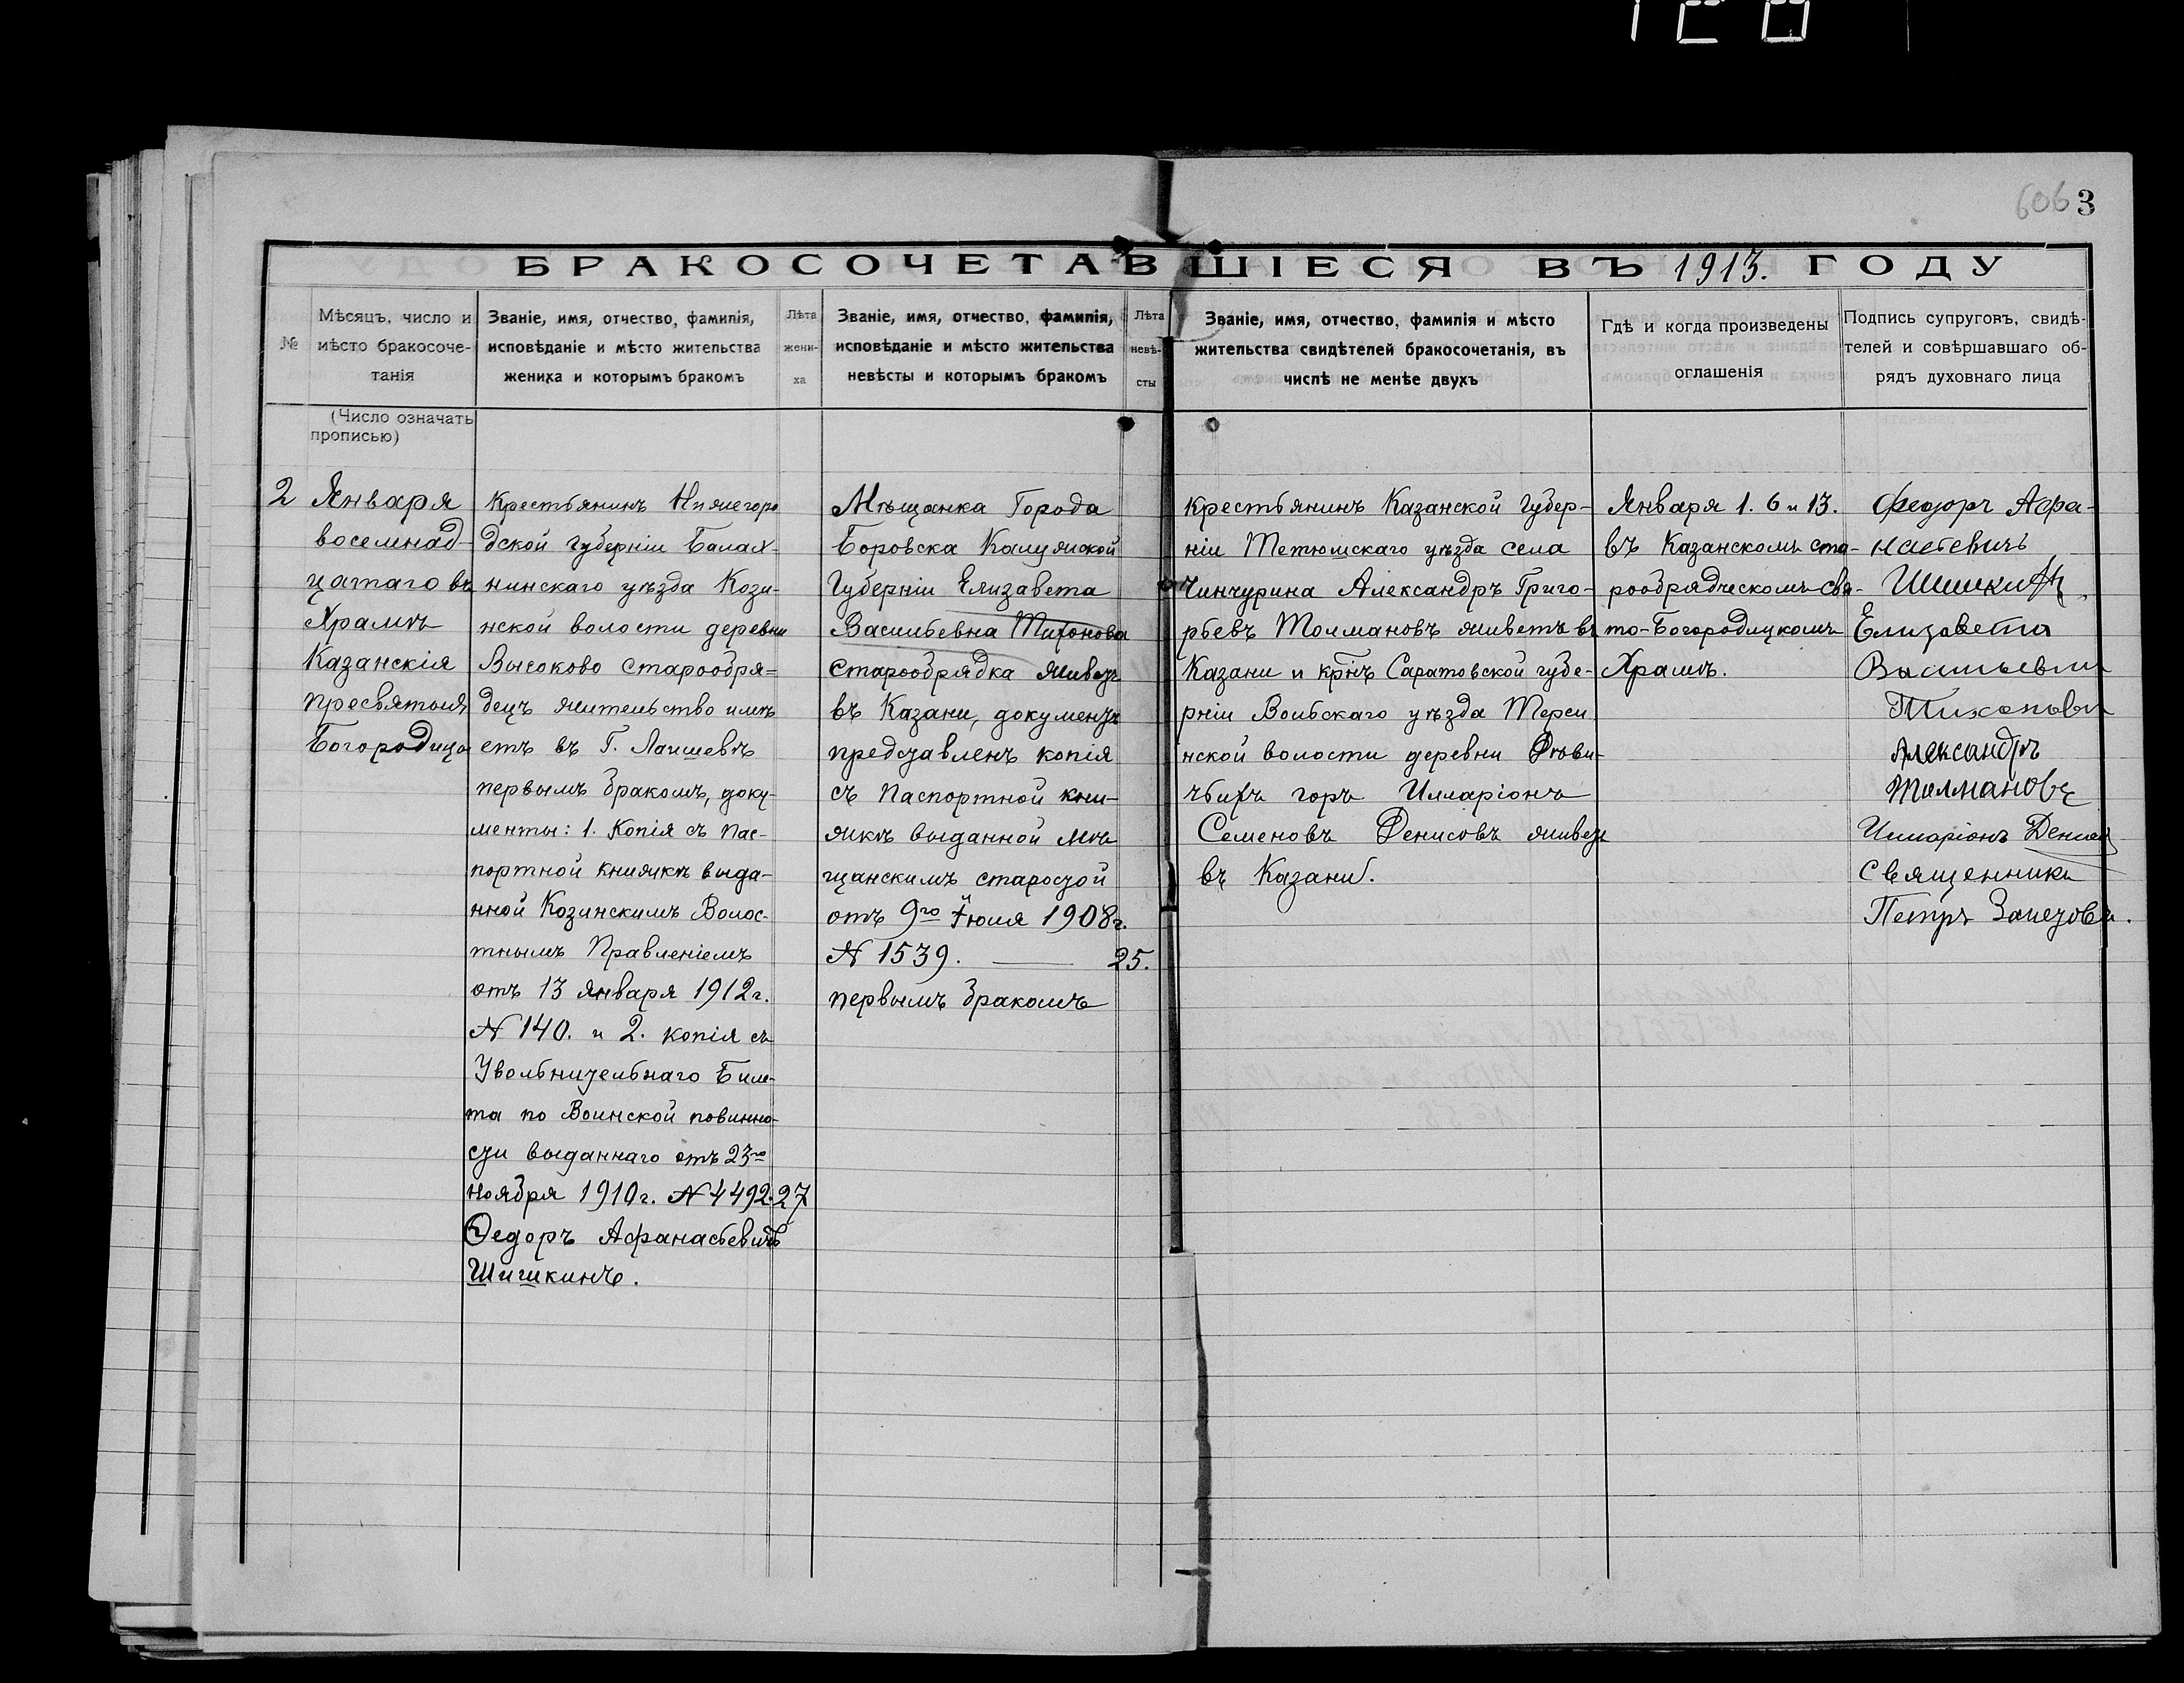 606 3
БРАКОСОЧЕТАВШІЕСЯ ВЪ 1913. ГОДУ
№
Мѣсяцъ, число и
мѣсто бракосоче-
танія
Званіе, имя, отчество, фамилія,
исповѣданіе и мѣсто жительства
жениха и которымъ бракомъ
Лѣта
жени-
ха
Званіе, имя, отчество, фамилія,
исповѣданіе и мѣсто жительства
невѣсты и которымъ бракомъ
Лѣта
невѣ-
сты
Званіе, имя, отчество, фамилія и мѣсто
жительства свидѣтелей бракосочетанія, въ
числѣ не менѣе двухъ
Гдѣ и когда произведены
оглашенія
Подпись супруговъ, свидѣ-
телей и совѣршавшаго об-
рядъ духовнаго лица
(Число означать
прописью)
2
Января
восемнад-
цатаго въ
Храмѣ
Казанскія
пресвятыя
Богородицы
Крестьянинъ Нижегоро
дской губерніи Балах-
нинскаго уѣзда Кози-
нской волости деревни
Высоково старообря=
децъ жительство имѣ
етъ въ Г. Лаишевѣ
первымъ бракомъ, доку-
менты: 1. Копія съ пас-
портной книжкѣ выда-
нной Козинскимъ Волос-
тнымъ Правленіемъ
отъ 13 Января 1912г.
№ 140. и 2. копія съ
Увольнительнаго Биле-
та по Воинской повинно-
сти выданнаго отъ 23го
ноября 1910г. № 4492. 27
Федоръ Афанасьевичъ
Шишкинъ.
Мѣщанка Города
Боровска Калужской
Губерніи Елизавета
Васильевна Тихонова
старообрядка живетъ
въ Казани, документъ
представленъ копія
съ Паспортной кни-
жкѣ выданной Мѣ
щанскимъ старостой
отъ 9го Іюля 1908г.
№ 1539. — 25.
первымъ бракомъ
крестьянинъ Казанской Губер-
ніи Тетюшскаго уѣзда села
Чинчурина Александръ Григо-
рьевъ Толмановъ живетъ въ
Казани и крнъ Саратовской губе-
рніи Вольскаго уѣзда Терси
нской волости деревни
горъ Илларіонъ
Семеновъ Денисовъ живетъ
въ Казани.
Января 1. 6 и 13.
въ Казанскомъ ста-
рообрядческомъ свя-
то-Богородицкомъ
Храмѣ.
Федоръ Афа-
насьевичъ
Шишкинъ
Елизавета
Васильевна
Тихонова
Александръ
Толмановъ
Илларіонъ Денисовъ
Священникъ
Петръ